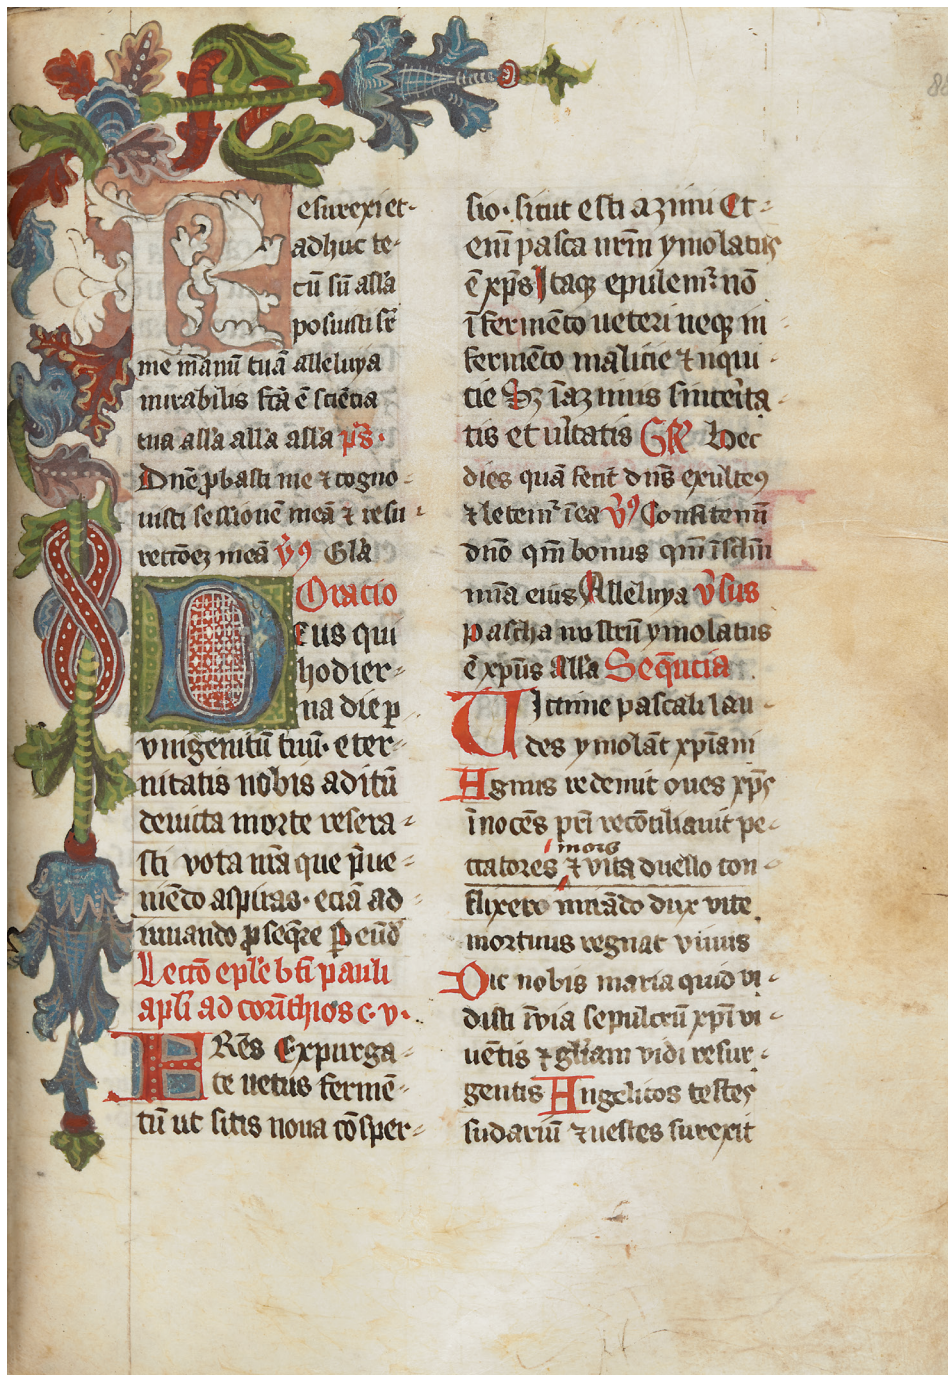 Resurexi et
adhuc te-
cū sū all'a
posuisti sr̄
me manū tuā alleluya
mirabilis fc̄a ē sciēcia
tua all'a all'a all'a p̄s.
Dn̄e ꝓbasti me ⁊ cogno-
uisti sessionē meā ⁊ resu-
rectōeꝫ meā v̄ꝰ Gl'a
Oracio
Deus qui
hodier-
na die ꝑ
vnigenitū tuū eter-
nitatis nobis aditū
deuicta morte resera-
sti vota nr̄a que p̄ue-
niēdo aspiras. eciā ad-
iuuando ꝓseqr̄e ꝑ eūd
Lectō ep̄le bt̄i pauli
apl̄i ad corīthios c. v.
FRēs Expurga-
te uetus fermē-
tū ut sitis noua cōsper-
sio. sicut estis azimi Et-
eni pasca nr̄m ymolatus
ē xp̄s Itaqꝫ epulemr̄ nō
ī fermēto ueteri neqꝫ in
fermēto malicie ⁊ nqui-
cie Sꝫ ī azimis sincerita-
tis et uītatis Gr̄ Hec
dies quā fecit dn̄s exulteꝰ
⁊ letemr̄ ī ea v̄ꝰ Confitemī
dn̄o qm̄ bonus qm̄ ī sclm̄
mīa eius Alleluya v̄sus
pascha nostrū ymolatus
ē xpūs all'a Seqn̄cia
Uictime pascali lau-
des ymolāt xpīani
Agnus redemit oues xp̄s
īnocēs pr̄i recōciliauit pe-
mors
ccatores ⁊ vita duello con-
flixerō mirādo dux vite
mortuus regnat viuus
Dic nobis maria quid vi-
disti ī via sepulcrū xpī vi-
uētis ⁊ gl̄iam vidi resur-
gentis Angelicos testes
sudariū ⁊ uestes surexit